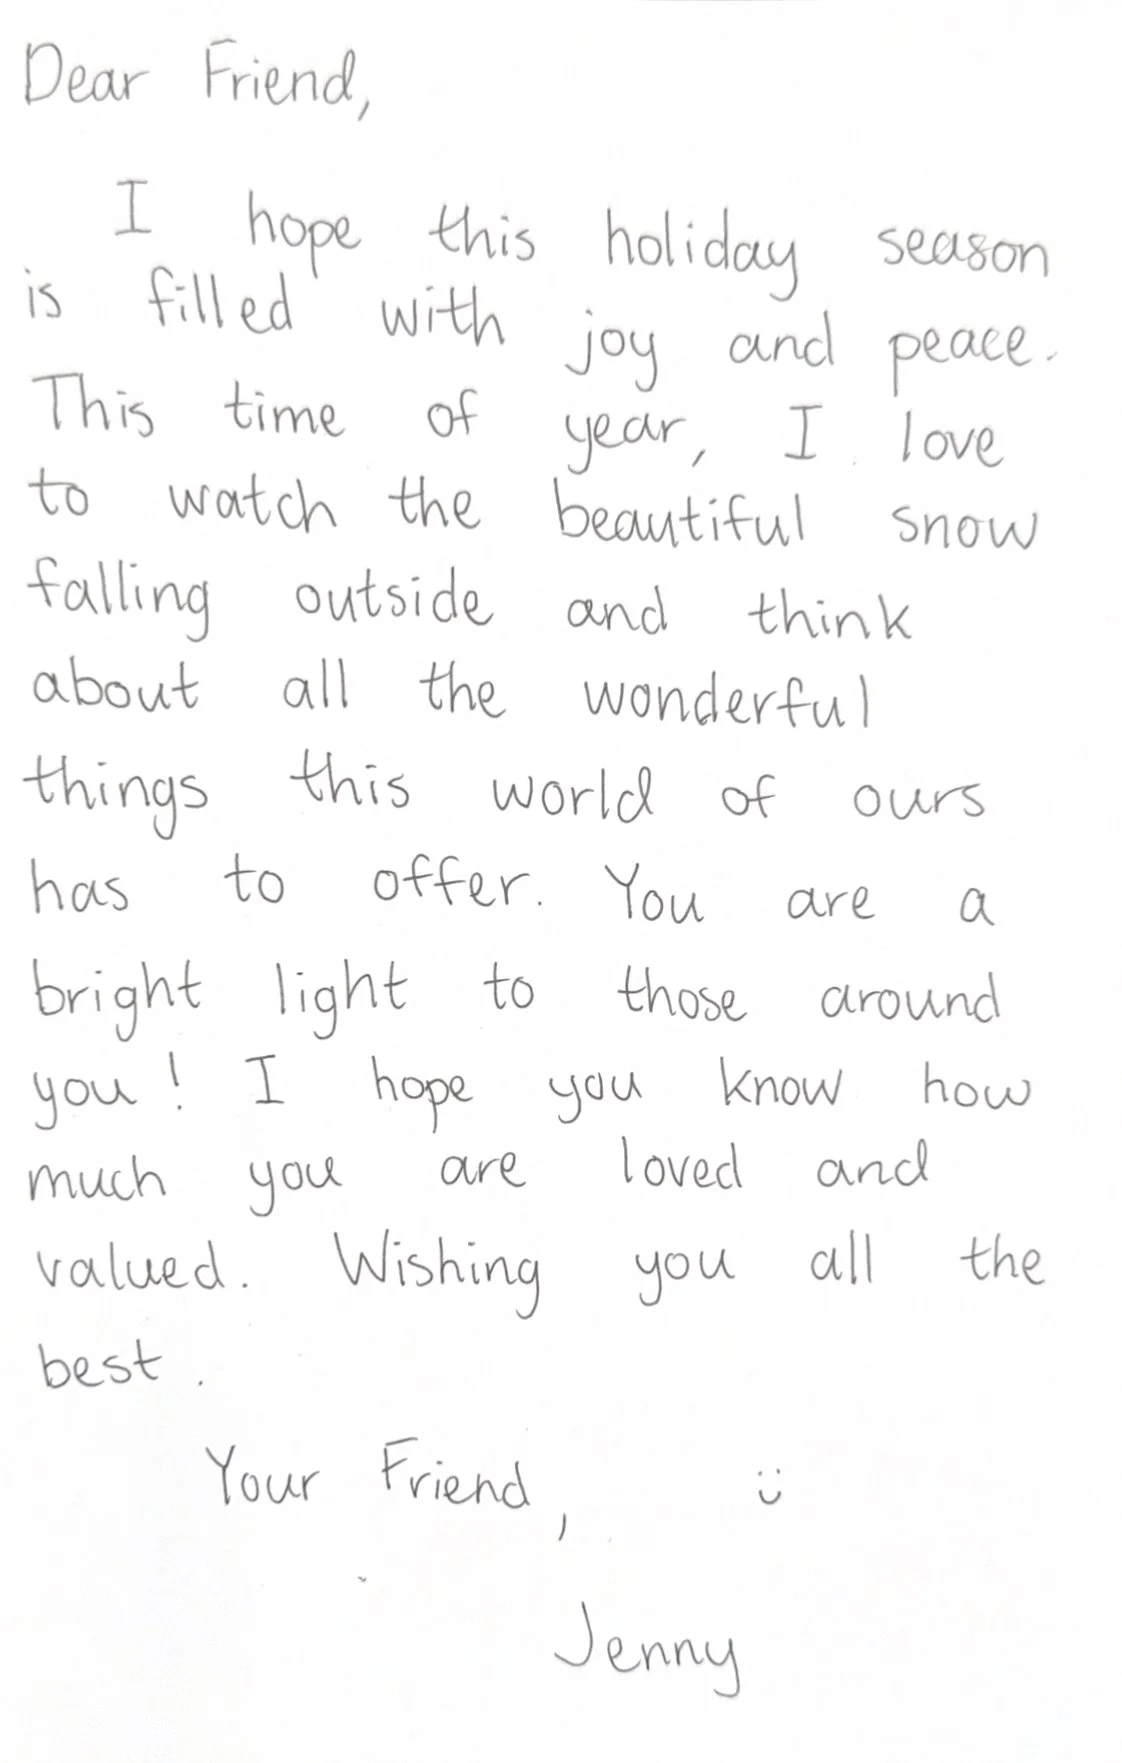 Dear Friend,
I hope this holiday season
is filled with joy and peace.
This time of year, I love
to watch the beautiful snow
falling outside and think
about all the wonderful
things this world of ours
has to offer. You are a
bright light to those around
you! I hope you know how
much you are loved and
valued. Wishing you all the
best.
Your Friend, :)
Jenny